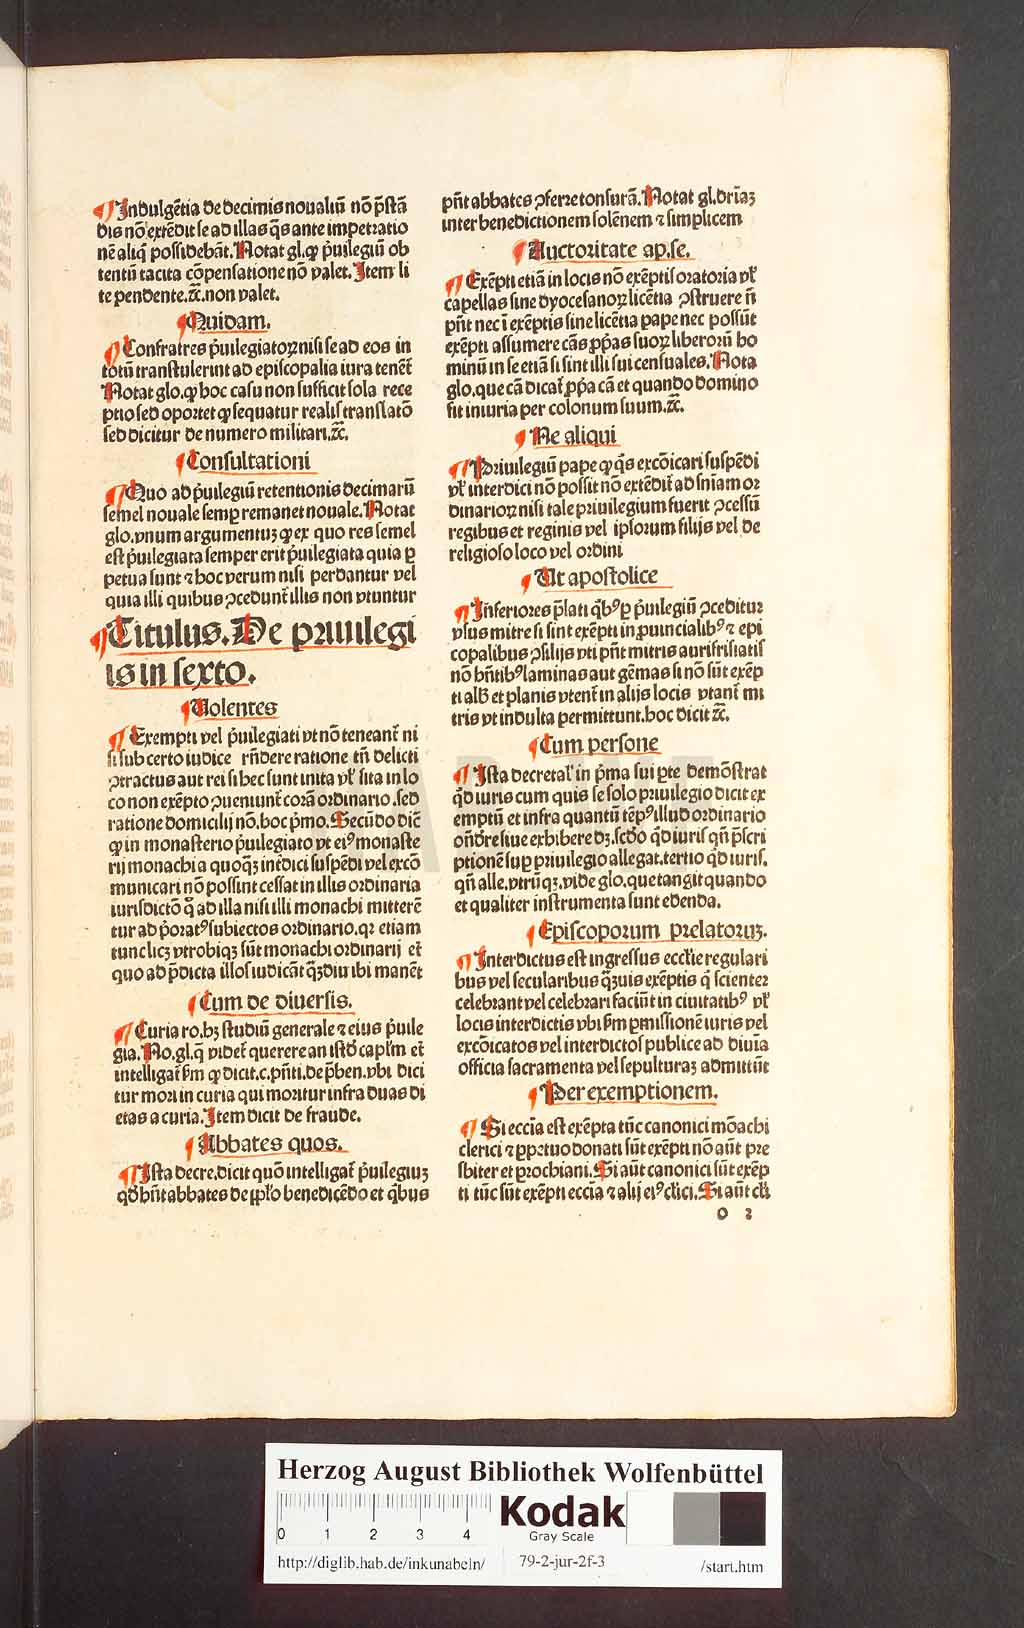 ¶ Indulgẽtia de decimis noualiũ nõ p̃stã
dis nõ extẽdit se ad illas q̃s ante impetratio
nẽ aliq̃ possidebãt. Notat gl. ꝙ p̃uilegiũ ob
tentũ tacita cõpensatione nõ valet. Item li
te pendente.⁊c̃.non valet.
¶ Quidam.
¶ Confratres p̃uilegiatoꝝ nisi se ad eos in
totũ transtulerint ad episcopalia iura tenẽt̃
Notat glo.ꝙ hoc casu non sufficit sola rece
ptio sed oportet ꝙ sequatur realis translatõ
sed dicitur de numero militari.⁊c̃.
¶ Consultationi
¶ Quo ad p̃uilegiũ retentionis decimarũ
semel nouale semꝑ remanet nouale. Notat
glo.vnum argumentuꝫ ꝙ ex quo res semel
est p̃uilegiata semper erit p̃uilegiata quia ꝑ
petua sunt ⁊ hoc verum nisi perdantur vel
quia illi quibus ꝯcedunt̃ illis non vtuntur
¶ Titulus. De priuilegi
is in sexto.
¶ Volentes
¶ Exempti vel p̃uilegiati vt nõ teneant̃ ni
si sub certo iudice rñdere ratione tñ delicti
ꝯtractus aut rei si hec sunt inita vl̃ sita in lo
co non exẽpto ꝯueniunt̃ corã ordinario.sed
ratione domicilij nõ.hoc p̃mo. Secũdo dic̃
ꝙ in monasterio p̃uilegiato vt eiꝰ monaste
rij monachi a quoqꝫ int̃dici suspẽdi vel excõ
municari nõ possint cessat in illis ordinaria
iurisdictõ q̃ ad illa nisi illi monachi mitterẽ
tur ad p̃oratꝰ subiectos ordinario.qꝛ etiam
tunc licꝫ vtrobiqꝫ sũt monachi ordinarij et̃
quo ad p̃dicta illos iudicãt q̃ꝫdiu ibi manẽt
¶ Cum de diuersis.
¶ Curia ro.hꝫ studiũ generale ⁊ eius p̃uile
gia. No.gl.q̃ videt̃ querere an istd̃ capl̃m et̃
intelligat̃ s̃m ꝙ dicit.c.pñti.de p̃ben.vbi dici
tur mori in curia qui moritur infra duas di
etas a curia. Item dicit de fraude.
¶ Abbates quos.
¶ Ista decre.dicit quõ intelligat̃ p̃uilegiuꝫ
qd̃ hñt abbates de pp̃lo benedicẽdo et q̃bus
pñt abbates ꝯferre tonsurã. Notat gl.dr̃iaꝫ
inter benedictionem solẽnem ⁊ simplicem
¶ Auctoritate ap.se.
¶ Exẽpti etiã in locis nõ exẽptis oratoria vl̃
capellas sine dyocesanoꝝ licẽtia ꝯstruere ñ
pñt nec ĩ exẽptis sine licẽtia pape nec possũt
exẽpti assumere cãs ꝓp̃as suoꝝ liberorũ ho
minũ in se etiã si sint illis sui censuales. Nota
glo.que cã dicat̃ ꝓp̃a cã et quando domino
fit iniuria per colonum suum.⁊c̃.
¶ Ne aliqui
¶ Priuilegiũ pape ꝙ q̃s excõicari suspẽdi
vl̃ interdici nõ possit nõ extẽdit̃ ad sniam or
dinarioꝝ nisi tale priuilegium fuerit ꝯcessũ
regibus et reginis vel ipsorum filijs vel de
religioso loco vel ordini
¶ Ut apostolice
¶ Inferiores p̃lati q̃bꝰ ꝑ p̃uilegiũ ꝯceditur
vsus mitre si sint exẽpti in ꝓuincialibꝰ ⁊ epi
copalibus ꝯsilijs vti pñt mitris aurifrisiatis
nõ hñtibꝰ laminas aut gẽmas si nõ sũt exẽp
ti alb̃ et planis vtent̃ in alijs locis vtant̃ mi
tris vt indulta permittunt.hoc dicit ⁊c̃.
¶ Cum persone
¶ Ista decretal̃ in p̃ma sui ꝑte demõstrat
qd̃ iuris cum quis se solo priuilegio dicit ex
emptũ et infra quantũ tẽpꝰ illud ordinario
oñdere siue exhibere dꝫ.scd̃o qd̃ iuris qñ p̃scri
ptionẽ suꝑ priuilegio allegat.tertio qd̃ iuris.
qñ alle.vtrũqꝫ.vide glo.que tangit quando
et qualiter instrumenta sunt edenda.
¶ Episcoporum prelatoruꝫ.
¶ Interdictus est ingressus eccl̃ie regulari
bus vel secularibus q̃ꝫuis exẽptis q̃ scienter
celebrant vel celebrari faciũt in ciuitatibꝰ vl̃
locis interdictis vbi s̃m ꝑmissionẽ iuris vel
excõicatos vel interdictos publice ad diuĩa
officia sacramenta vel sepulturaꝫ admittũt
¶ Per exemptionem.
¶ Si ecc̃ia est exẽpta tũc canonici mõachi
clerici ⁊ ꝑpetuo donati sũt exẽpti nõ aũt pre
sbiter et ꝑochiani. Si aũt canonici sũt exẽp
ti tũc sũt exẽpti ecc̃ia ⁊ alij eiꝰ cl̃ici. Si aũt cl̃i
o 2
Herzog August Bibliothek Wolfenbüttel
0 1 2 3 4
Kodak
Gray Scale
http://diglib.hab.de/inkunabeln/ 79-2-jur-2f-3 /start.htm